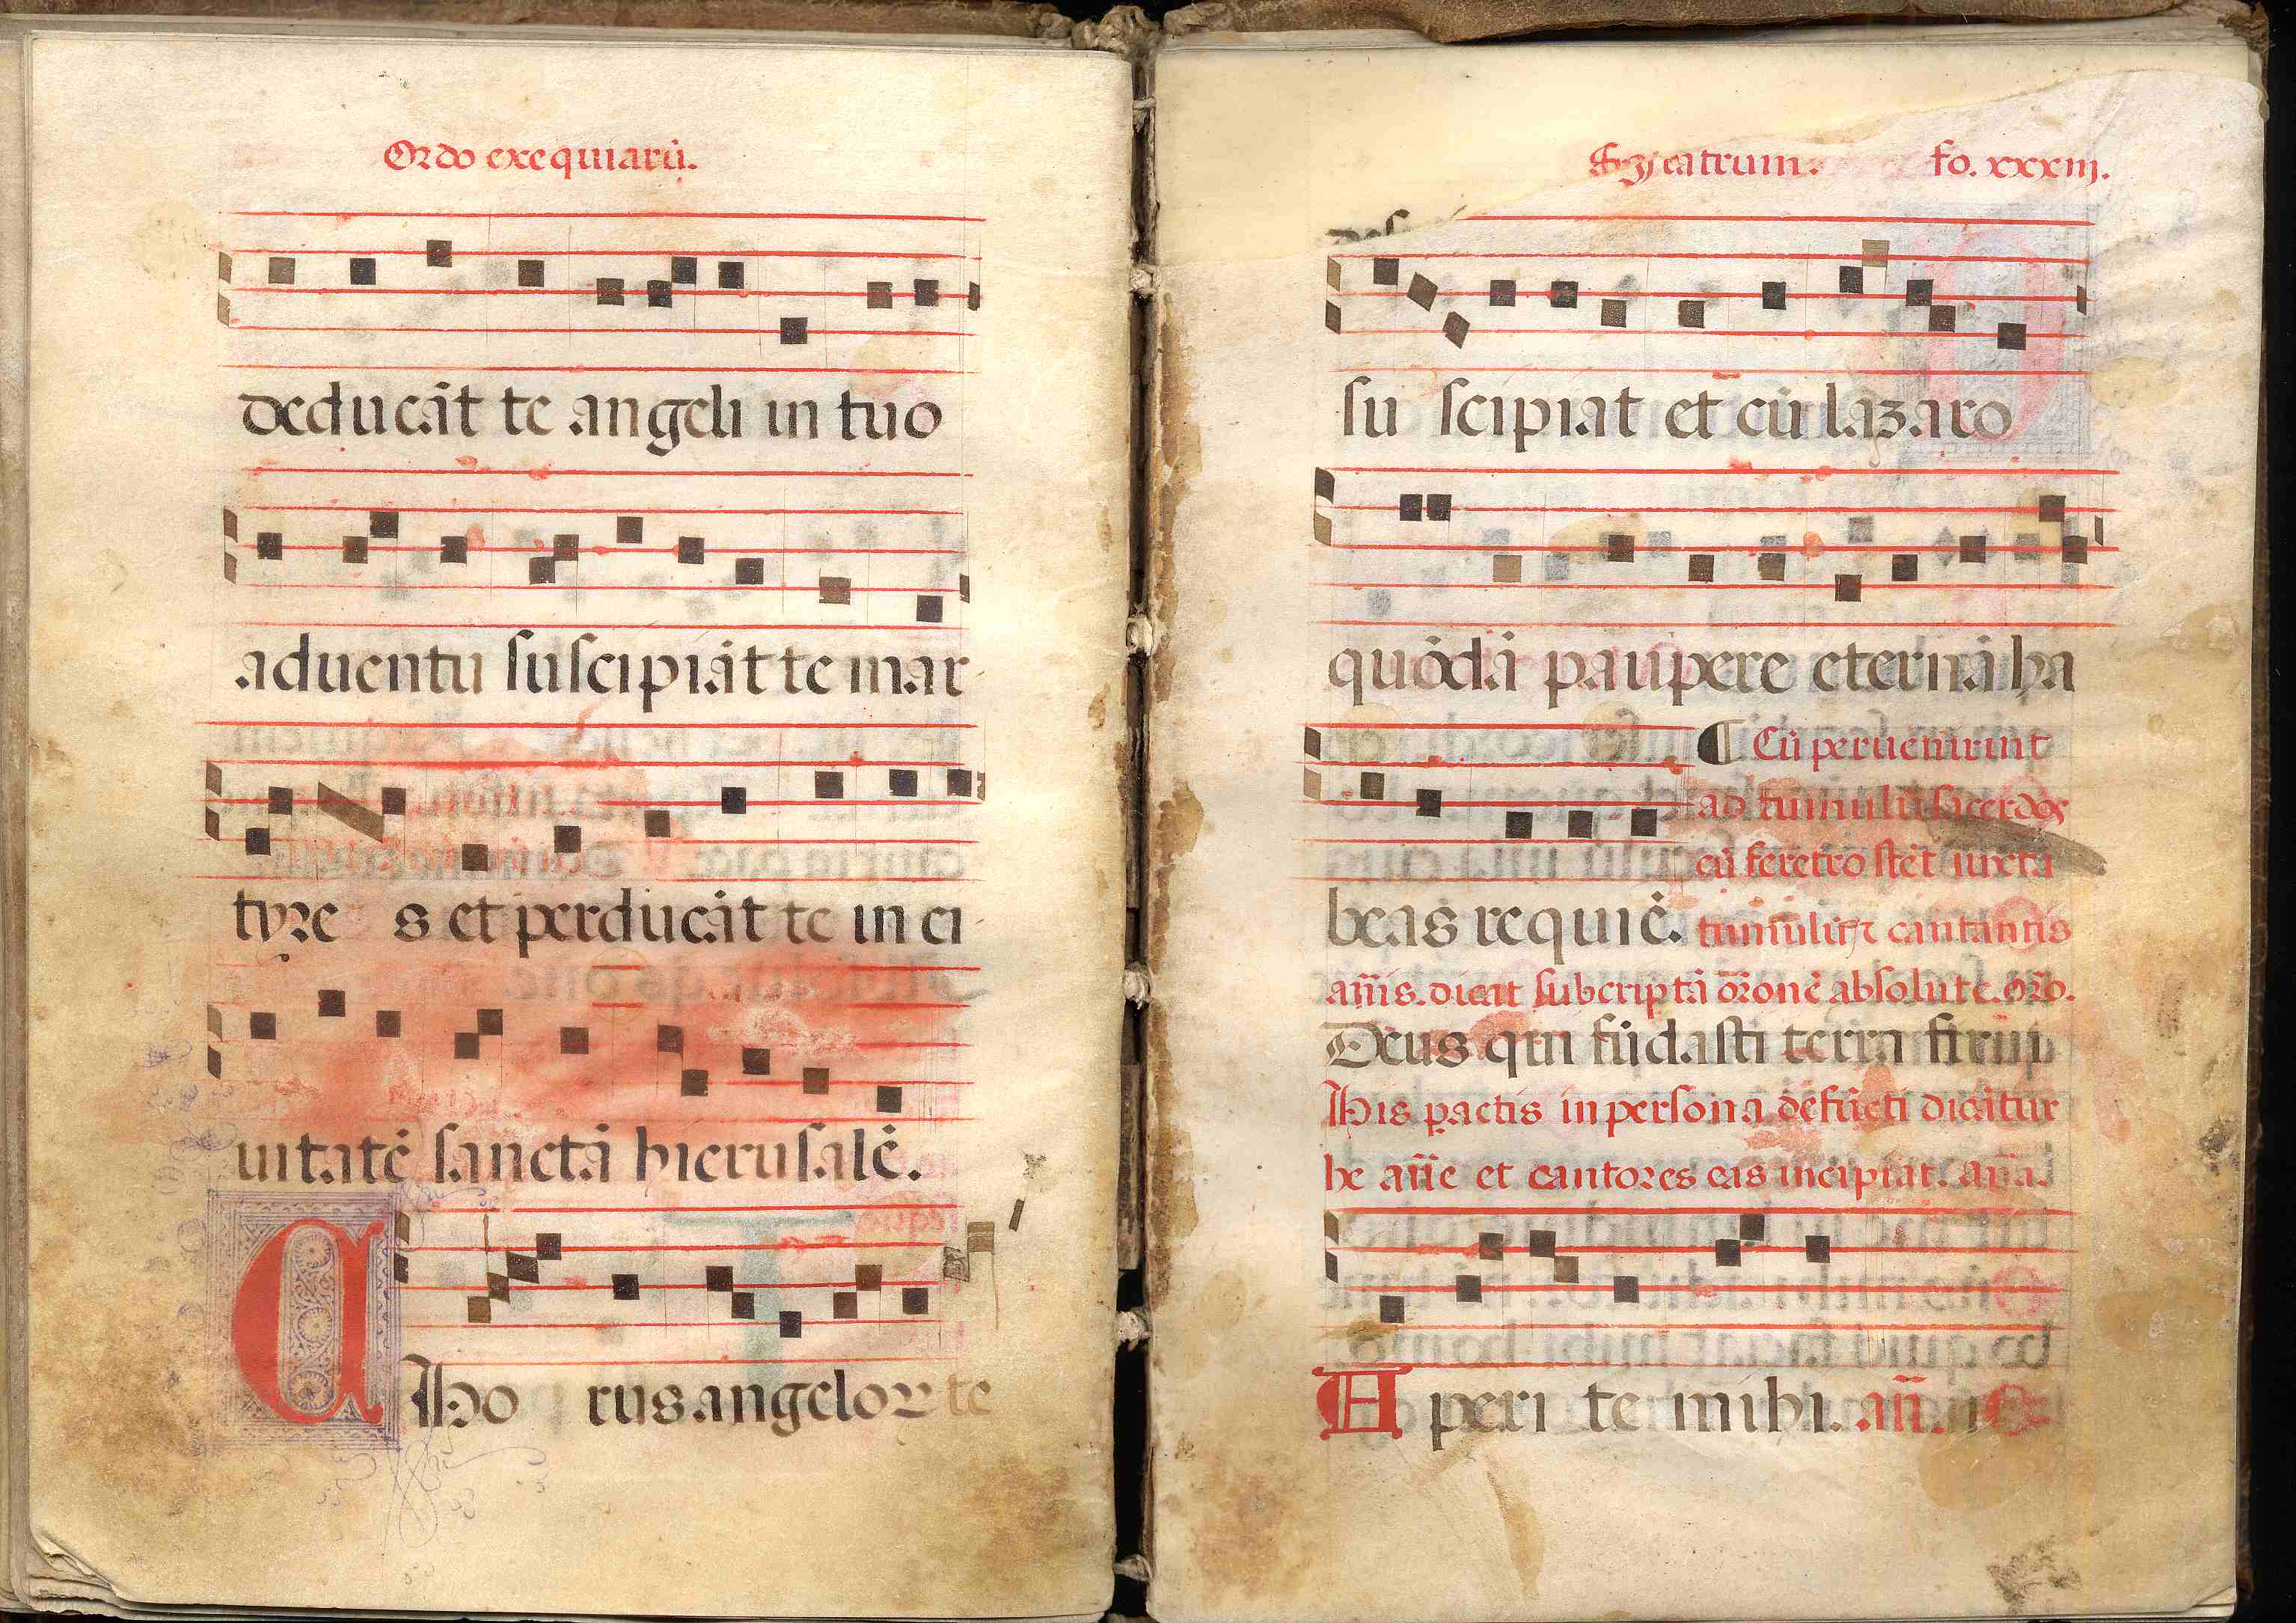 Ordo exequiarū.
deducāt te angeli in tuo
aduentu suscipiāt te mar
tyre s et perducāt te in ci
uitatē sanctā hierusalē.
C Ho rus angeloꝝ te
fratrum. fo. xxxiij.
su scipiat et cū lazaro
quōdā paupere eternā ha
¶ Cū peruenirint
ad tumulū sacerdos
cū feretro stēt iuxta
beas requiē. tumulū et cantantis
añis. dicat subcriptā or̄onē absolute. or̄o.
Deus qui fūdasti terrā
His pactis in persona defūcti dicātur
he añe et cantores eas incipiat. aña.
A peri te mihi. añ.